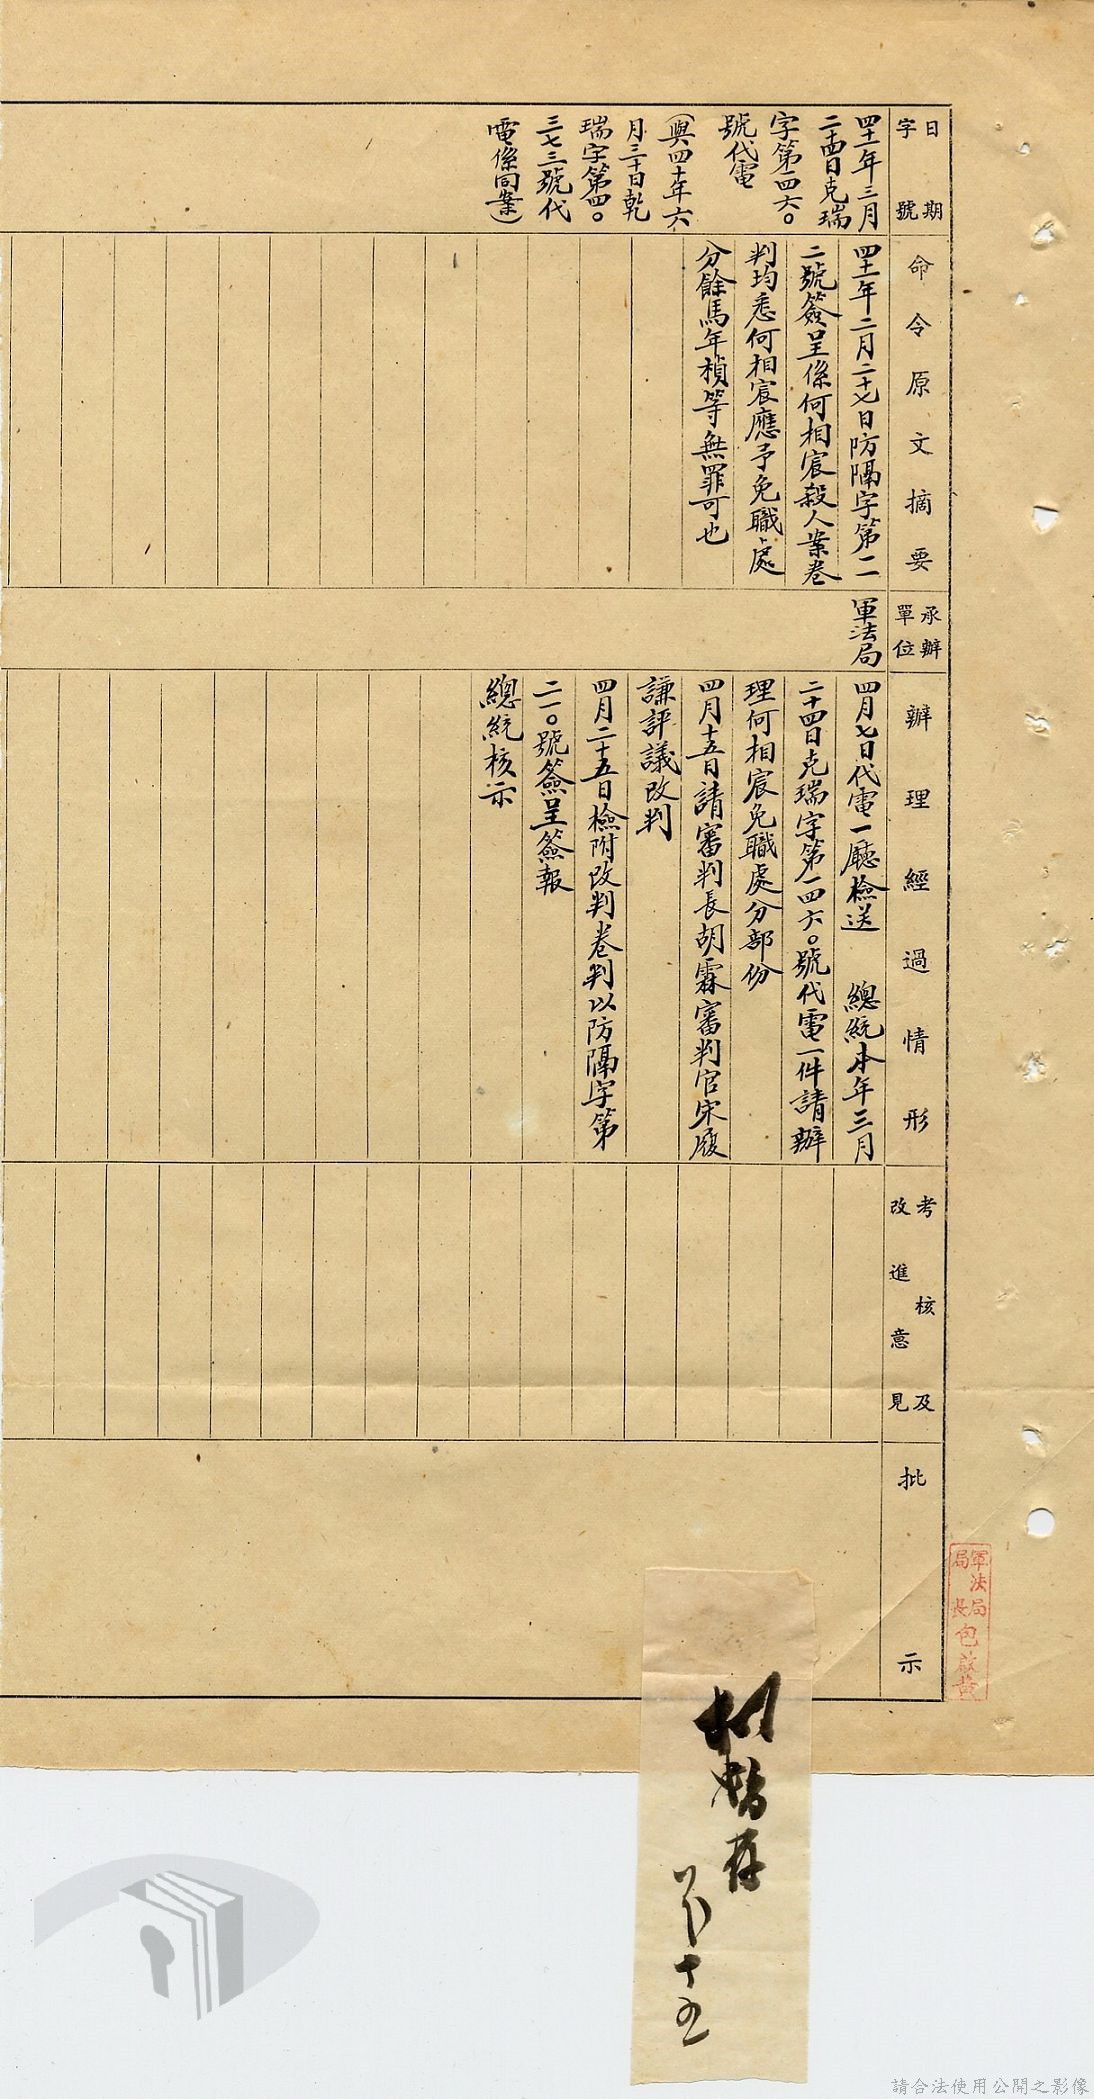 日期
字號
四十一年三月
二十四日克瑞
字第一四六〇
號代電
(與四十年六
月三十日乾
瑞字第四〇
三七三號代
電係同案)
命令原文摘要
四十一年二月二十七日防隔字第二
二號簽呈係何相宸殺人案卷
判均悉何相宸應予免職處
分餘馬年楨等無罪可也
承辦
單位
軍法局
辦理經過情形
四月七日代電一廳檢送 總統本年三月
二十四日克瑞字第一四六〇號代電一件請辦
理何相宸免職處分部份
四月十五日請審判長胡霖審判官宋履
謙評議改判
四月二十五日檢附改判卷判以防隔字第
二一〇號簽呈簽報
總統核示
考核及
改進意見
批示
軍法局
局長包啟黃
存
十五
請合法使用公開之影像